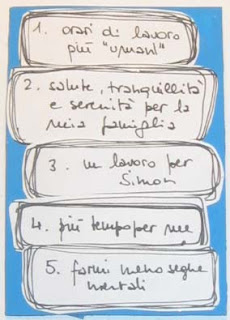 1. orari di lavoro
più "umani"
2. salute, tranquillità
e serenità per la
mia famiglia
3. un lavoro per
Simon
4. più tempo per me
5. farmi meno seghe
mentali